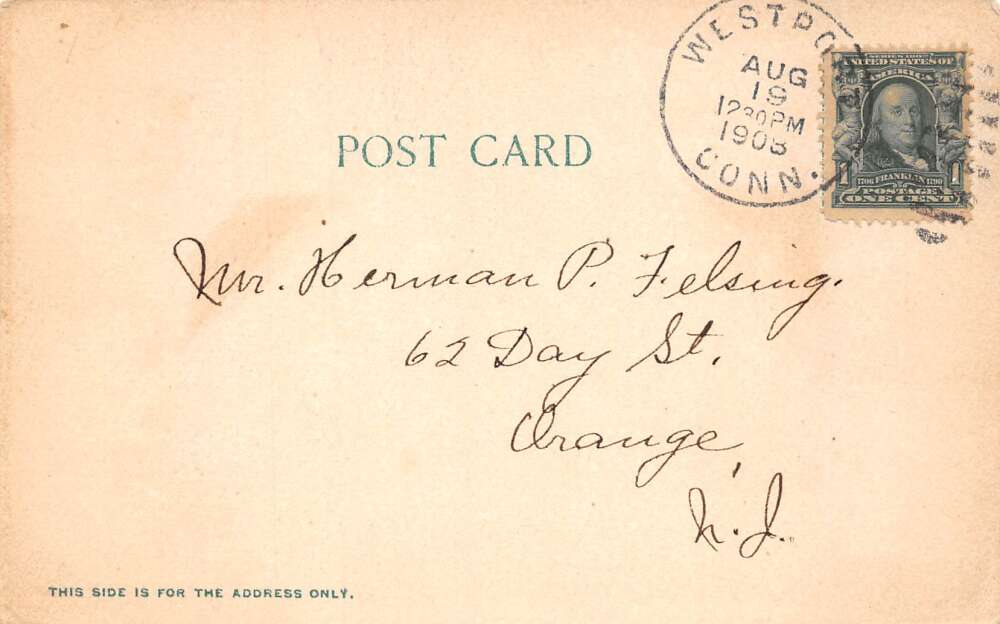 WESTPORT
AUG
19
1230PM
1908
CONN.
SERIES 1902
UNITED STATES OF
AMERICA
1706 FRANKLIN 1790
POSTAGE
1 1
ONE CENT
POST CARD
Mr. Herman P. Felsing.
62 Day St.
Orange,
N.J.
THIS SIDE IS FOR THE ADDRESS ONLY.